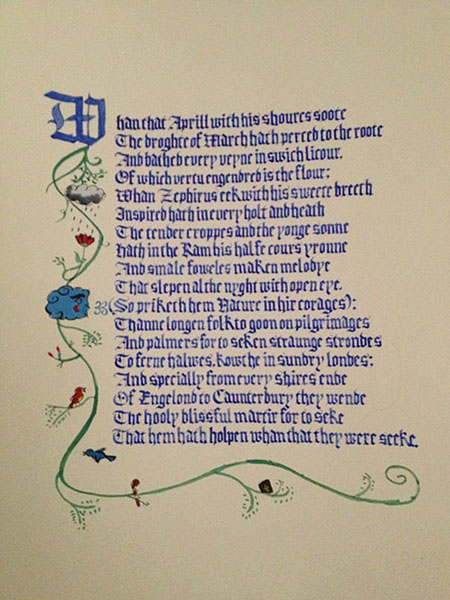 Whan that Aprill with his shoures soote
The droghte of March hath perced to the roote
And bathed every veyne in swich licour.
Of which vertu engendred is the flour;
Whan Zephirus eek with his sweete breeth
Inspired hath in every holt and heath
The tender croppes and the yonge sonne
Hath in the Ram his halfe cours yronne
And smale foweles maken melodye
That slepen al the nyght with open eye.
(So priketh hem Nature in hir corages):
Thanne longen folk to goon on pilgrimages
And palmers for to seken straunge strondes
To ferne halwes, kowthe in sundry londes;
And specially from every shires ende
Of Engelond to Caunterbury they wende
The hooly blissful martir for to seke
That hem hath holpen whan that they were seeke.